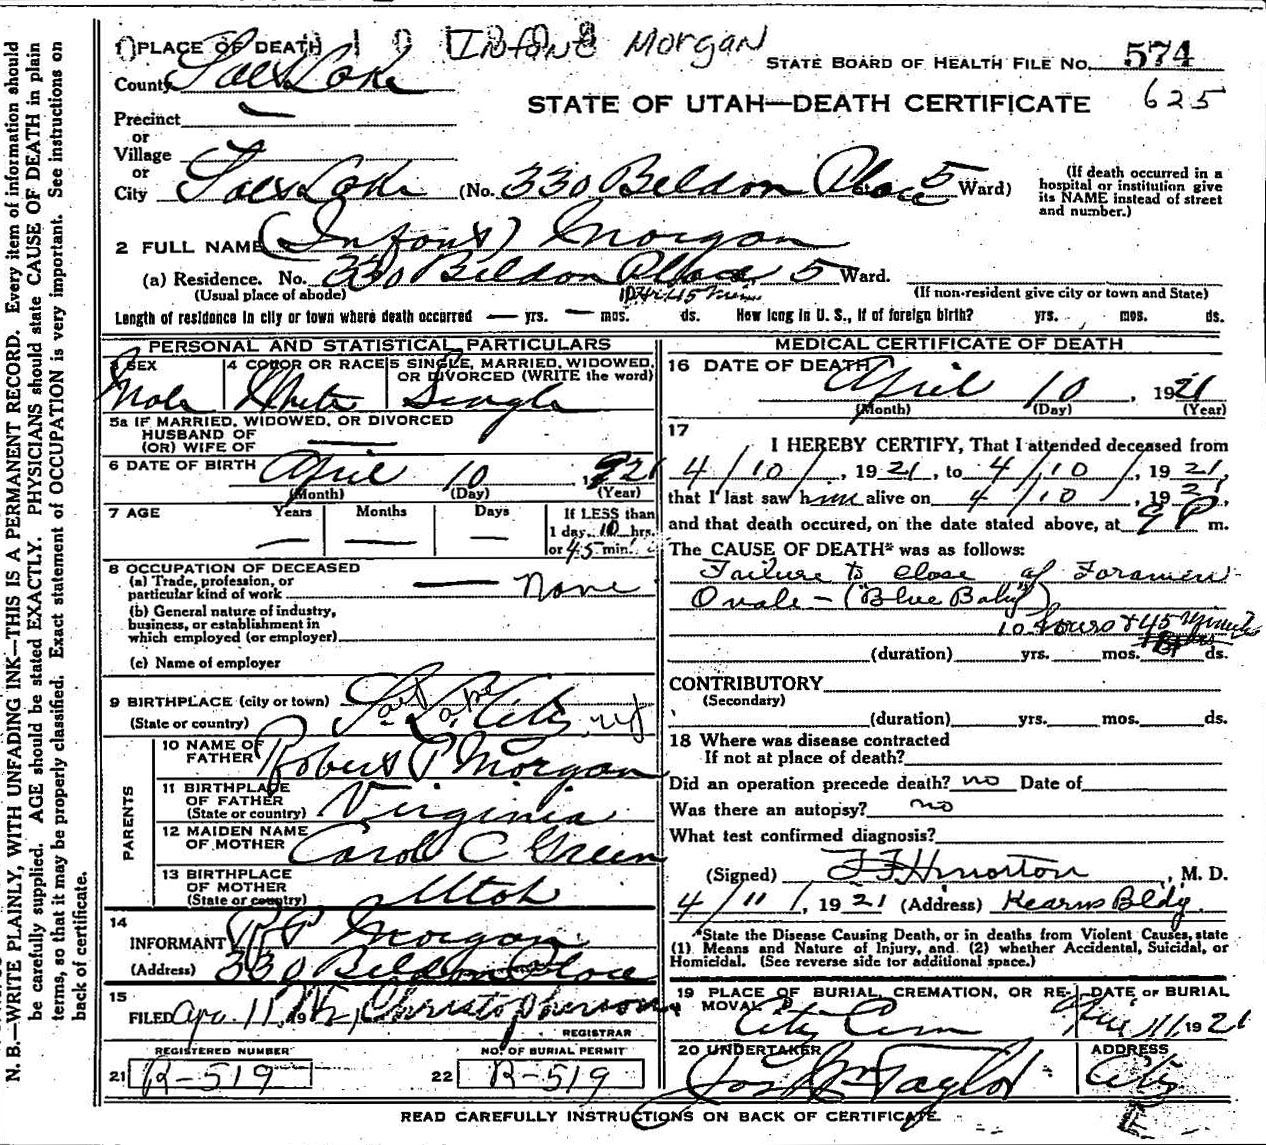 1 PLACE OF DEATH Infant Morgan
STATE BOARD OF HEALTH FILE NO. 574
County Salt Lake
STATE OF UTAH—DEATH CERTIFICATE 625
Precinct
or
Village
or
City Salt Lake (No. 330 Beldon Place 5 Ward)
(If death occurred in a
hospital or institution give
its NAME instead of street
and number.)
2 FULL NAME (Infant) Morgan
(a) Residence. No. 330 Beldon Place 5 Ward.
(Usual place of abode) 10 Hr 45 Min. (If non-resident give city or town and State)
Length of residence in city or town where death occurred — yrs. — mos. ds. How long in U. S., if of foreign birth? yrs. mos. ds.
PERSONAL AND STATISTICAL PARTICULARS
3 SEX 4 COLOR OR RACE 5 SINGLE, MARRIED, WIDOWED,
OR DIVORCED (WRITE the word)
Male White Single
5a IF MARRIED, WIDOWED, OR DIVORCED
HUSBAND OF
(OR) WIFE OF —
6 DATE OF BIRTH April 10 1921
(Month) (Day) (Year)
7 AGE Years Months Days If LESS than
1 day 10 hrs.
— — — or 45 min.
8 OCCUPATION OF DECEASED
(a) Trade, profession, or
particular kind of work — none
(b) General nature of industry,
business, or establishment in
which employed (or employer)
(c) Name of employer
9 BIRTHPLACE (city or town) Salt Lake City, ut
(State or country)
PARENTS
10 NAME OF
FATHER Robert P Morgan
11 BIRTHPLACE
OF FATHER
(State or country) Virginia
12 MAIDEN NAME
OF MOTHER Carol C Green
13 BIRTHPLACE
OF MOTHER
(State or country) Utah
14
INFORMANT R P Morgan
(Address) 330 Beldon Place
15
FILED Apr. 11, 19 Christopherson
REGISTRAR
REGISTERED NUMBER NO. OF BURIAL PERMIT
21 R-519 22 R-519
MEDICAL CERTIFICATE OF DEATH
16 DATE OF DEATH April 10, 1921
(Month) (Day) (Year)
17
I HEREBY CERTIFY, That I attended deceased from
4/10/, 1921, to 4/10/, 1921,
that I last saw him alive on 4/10, 1921,
and that death occured, on the date stated above, at 9 P m.
The CAUSE OF DEATH* was as follows:
Failure to close of Foramen
Ovale - ("Blue Baby")
10 hours & 45 minutes
(duration) yrs. mos. ds.
CONTRIBUTORY
(Secondary)
(duration) yrs. mos. ds.
18 Where was disease contracted
If not at place of death?
Did an operation precede death? no Date of
Was there an autopsy? no
What test confirmed diagnosis?
(Signed) , M. D.
4/11/, 1921 (Address) Kearns Bldg.
*State the Disease Causing Death, or in deaths from Violent Causes, state
(1) Means and Nature of Injury, and (2) whether Accidental, Suicidal, or
Homicidal. (See reverse side for additional space.)
19 PLACE OF BURIAL, CREMATION, OR RE-
MOVAL City Cem
DATE OF BURIAL
11 1921
20 UNDERTAKER Jos Wm Taylor
ADDRESS
City
READ CAREFULLY INSTRUCTIONS ON BACK OF CERTIFICATE.
N. B.—WRITE PLAINLY, WITH UNFADING INK—THIS IS A PERMANENT RECORD. Every item of information should
be carefully supplied. AGE should be stated EXACTLY. PHYSICIANS should state CAUSE OF DEATH in plain
terms, so that it may be properly classified. Exact statement of OCCUPATION is very important. See instructions on
back of certificate.